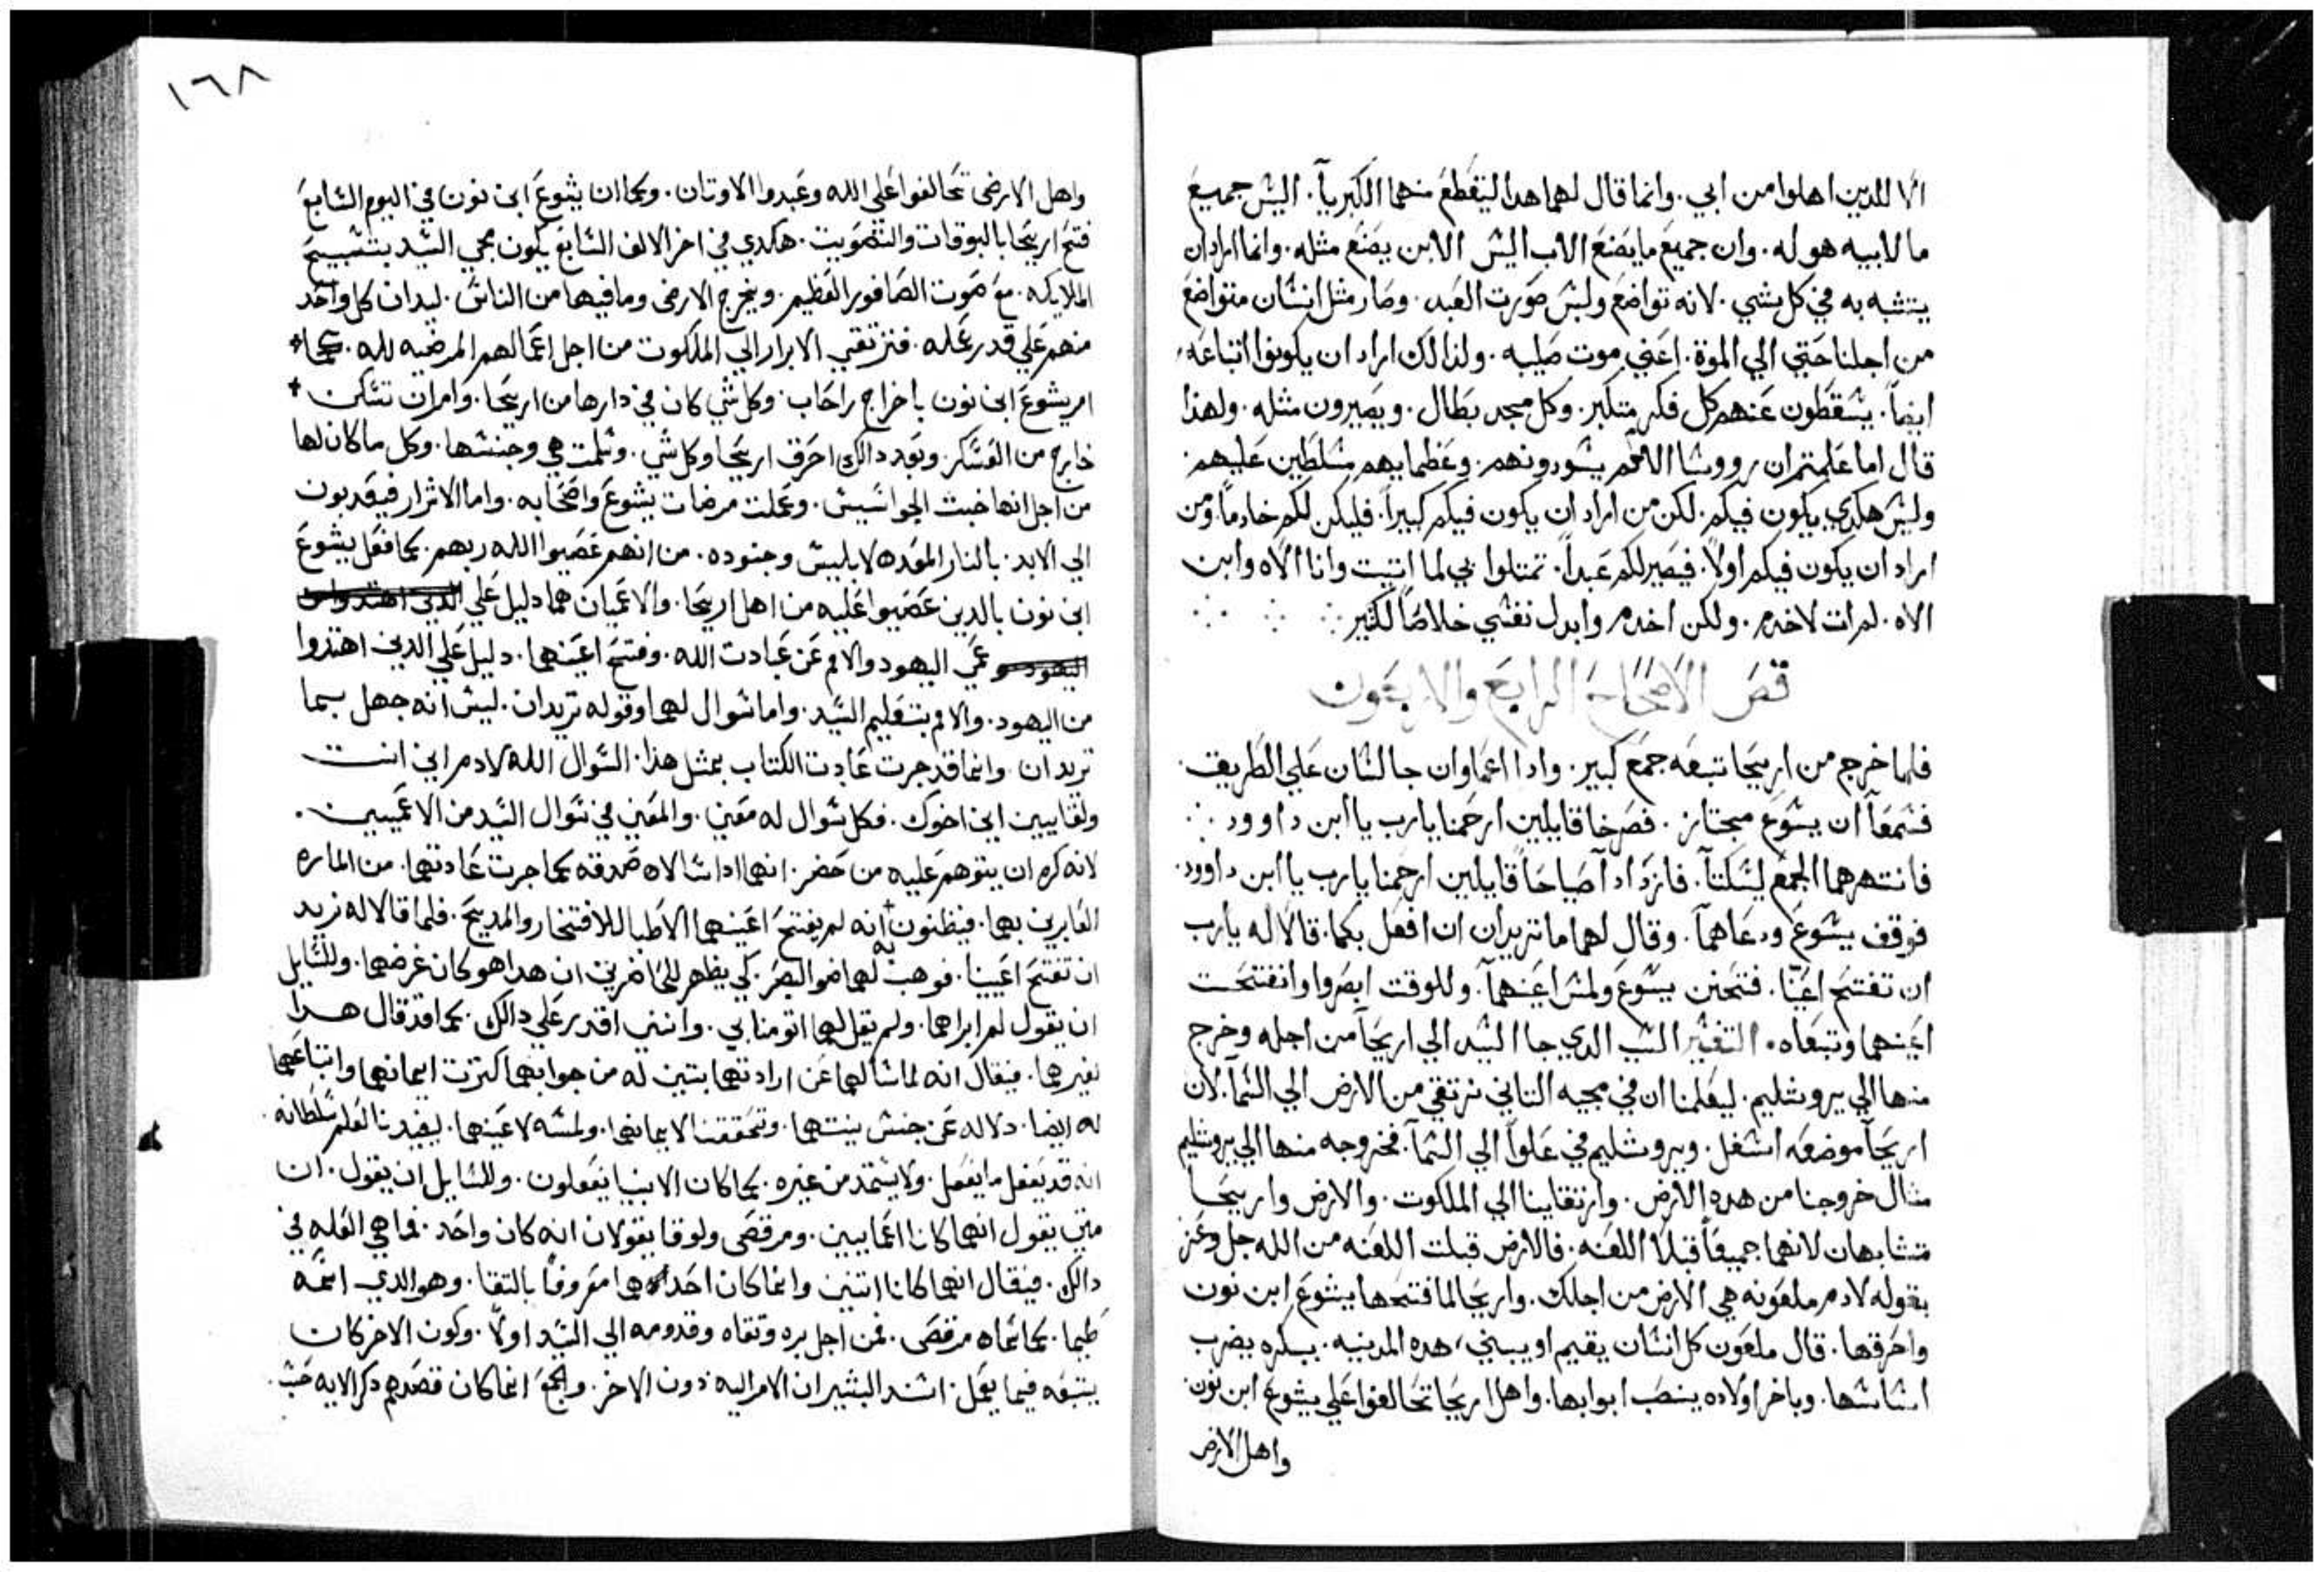 الا للدين اهلوا من ابي. وانما قال لهما هدا ليتقطع منهما الكبريآ. اليس جميع
ما لابيه هو له. وان جميع ما يصنع الاب اليس الابن يصنع مثله. وانما اراد ان
يتشبه به في كل شي. لانه تواضع ولبس صورت العبد. وصار مثل انسان متواضع
من اجلنا حتي الي الموة. اعني موت صليبه. ولذالك اراد ان يكونوا اتباعه
ايضاً. يسقطون عنهم كل فكر متكبر. وكل مجد بطال. ويصيرون مثله. ولهذا
قال اما علمتم ان رووسا الامم يسودونهم. وعظمايهم مسلطين عليهم.
وليس هكدي يكون فيكم. لكن من اراد ان يكون فيكم كبيراً. فليكن لكم خادماً. ومن
اراد ان يكون فيكم اولاً. فيصير لكم عبداً. تمتلوا بي لما اتيت وانا الاه وابن
الاه. لم ات لاخدم. ولكن اخدم وابدل نفسي خلاصاً لكثير
قص الاصحاح الرابع والاربعون
فلما خرج من اريحا تبعه جمع كبير. وادا اعماوان جالسان علي الطريق.
فسمعا ان يسوع مجتاز. فصرخا قايلين ارحمنا يا رب يا ابن داوود
فانتهرهما الجمع ليسكتا. فازدادا صياحا قايلين ارحمنا يا رب يا ابن داوود.
فوقف يسوع ودعاهما. وقال لهما ما تريدان ان افعل بكما. قالا له يا رب
ان تفتح اعيننا. فتحنن يسوع ولمس اعينهما. وللوقت ابصروا وانفتحت
اعينهما وتبعاه. التفسير السبب الدي جا السيد الي اريحا من اجله وخرج
منها الي يروشليم. ليعلمنا ان في مجيه التاني نرتقي من الارض الي السما. لان
اريحا موضعه اسفل. ويروشليم في علواً الي السما. فخروجه منها الي يروشليم
مثال خروجنا من هده الارض. وارتقاينا الي الملكوت. والارض واريحا
متشابهان لانهما جميعاً قبلا اللعنه. فالارض قبلت اللعنه من الله جل وعز
بقوله لادم ملعونه هي الارض من اجلك. واريحا لما فتحها يشوع ابن نون
واحرقها. قال ملعون كل انسان يقيم او يبني هده المدينه. ببكره يضرب
اساسها. وباخر اولاده ينصب ابوابها. واهل اريحا تحالفوا علي يشوع ابن نون
واهل الارض
١٦٨
واهل الارض تحالفوا علي الله وعبدوا الاوتان. وكما ان يشوع ابن نون في اليوم السابع
فتح اريحا بالبوقات والتصويت. هكدي في اخر الالف السابع يكون مجي السيد بتسبيح
الملايكه. مع صوت الصافور العظيم. ويخرج الارض وما فيها من الناس. ليدان كل واحد
منهم علي قدر عمله. فترتقي الابرار الي الملكوت من اجل اعمالهم المرضيه لله. كما
امر يشوع ابن نون باخراج راحاب. وكل شي كان في دارها من اريحا. وامر ان تسكن
خارج من العسكر. وبعد دالك احرق اريحا وكل شي. وسلمت هي وجنسها. وكل ما كان لها
من اجل انها خبت الجواسيس. وعملت مرضات يشوع واصحابه. واما الاشرار فيعدبون
الي الابد. بالنار المعده لابليس وجنوده. من انهم عصيوا الله ربهم. كما فعل يشوع
ابن نون بالدين عصيوا عليه من اهل اريحا. والاعميان هما دليل علي الدين اهتدوا من
اليهود عمي اليهود والامم عن عبادت الله. وفتح اعينهما. دليل علي الدين اهتدوا
من اليهود. والامم بتعليم السيد. واما سوال لهما وقوله تريدان. ليس انه جهل بما
تريدان. وانما قد جرت عادت الكتاب بمثل هذا. السوال الله لادم اين انت
ولقايين اين اخوك. فكل سوال له معني. والمعني في سوال السيد من الاعميين.
لانه كره ان يتوهم عليه من حضر. انهما ادا سالاه صدقه كما جرت عادتهما. من الماره
العابرين بهما. فيظنون انه لم يفتح اعينهما الا طبا للافتخار والمديح. فلما قالا له نريد
ان تفتح اعيينا. فوهب لهما ضو البصر. كي يظهر للحاضرين ان هدا هو كان غرضهما. وللسايل
ان يقول لم ابراهما. ولم يقل لهما اتومنا بي. وانني اقدر علي دالك. كما قد قال هدا
لغيرهما. فيقال انه لما سالهما عن ارادتهما بتبين له من جوابهما كترت ايمانهما واتباعهما
له ايضا. دلاله عن جنس بينتهما. وتحققنا لايمانهما. ولمسه لاعينهما. ليفيدنا لعلم سلطانه.
انه قد يفعل ما يفعل. ولا يستمد من غيره. كما كان الانبيا يفعلون. وللسايل ان يقول. ان
متي يقول انهما كانا اعمايين. ومرقص ولوقا يقولان انه كان واحد. فما هي العله في
دالك. فيقال انهما كانا اتنين وانما كان احداهما معروفاً بالتقا. وهو الدي اسمه
طيما. كما سماه مرقص. فمن اجل بره وتقاه وقدومه الي السيد اولاً. وكون الاخر كان
يتبعه فيما يعمل. اسند البشيران الامر اليه دون الاخر. والجمع انما كان قصدهم دكر الايه حسب.